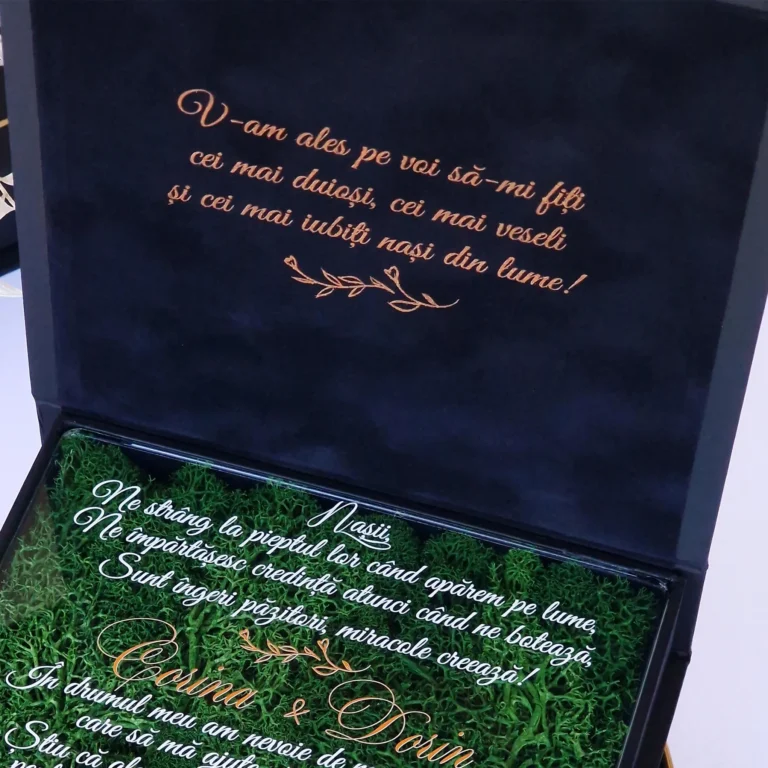 V-am ales pe voi să-mi fiți
cei mai duioși, cei mai veseli
și cei mai iubiți nași din lume!
Nașii,
Ne strâng la pieptul lor când apărem pe lume,
Ne împărtășesc credință atunci când ne botează,
Sunt îngeri păzitori, miracole creează!
Cosina & Dorin
În drumul meu am nevoie de
care să mă ajute
Știu că